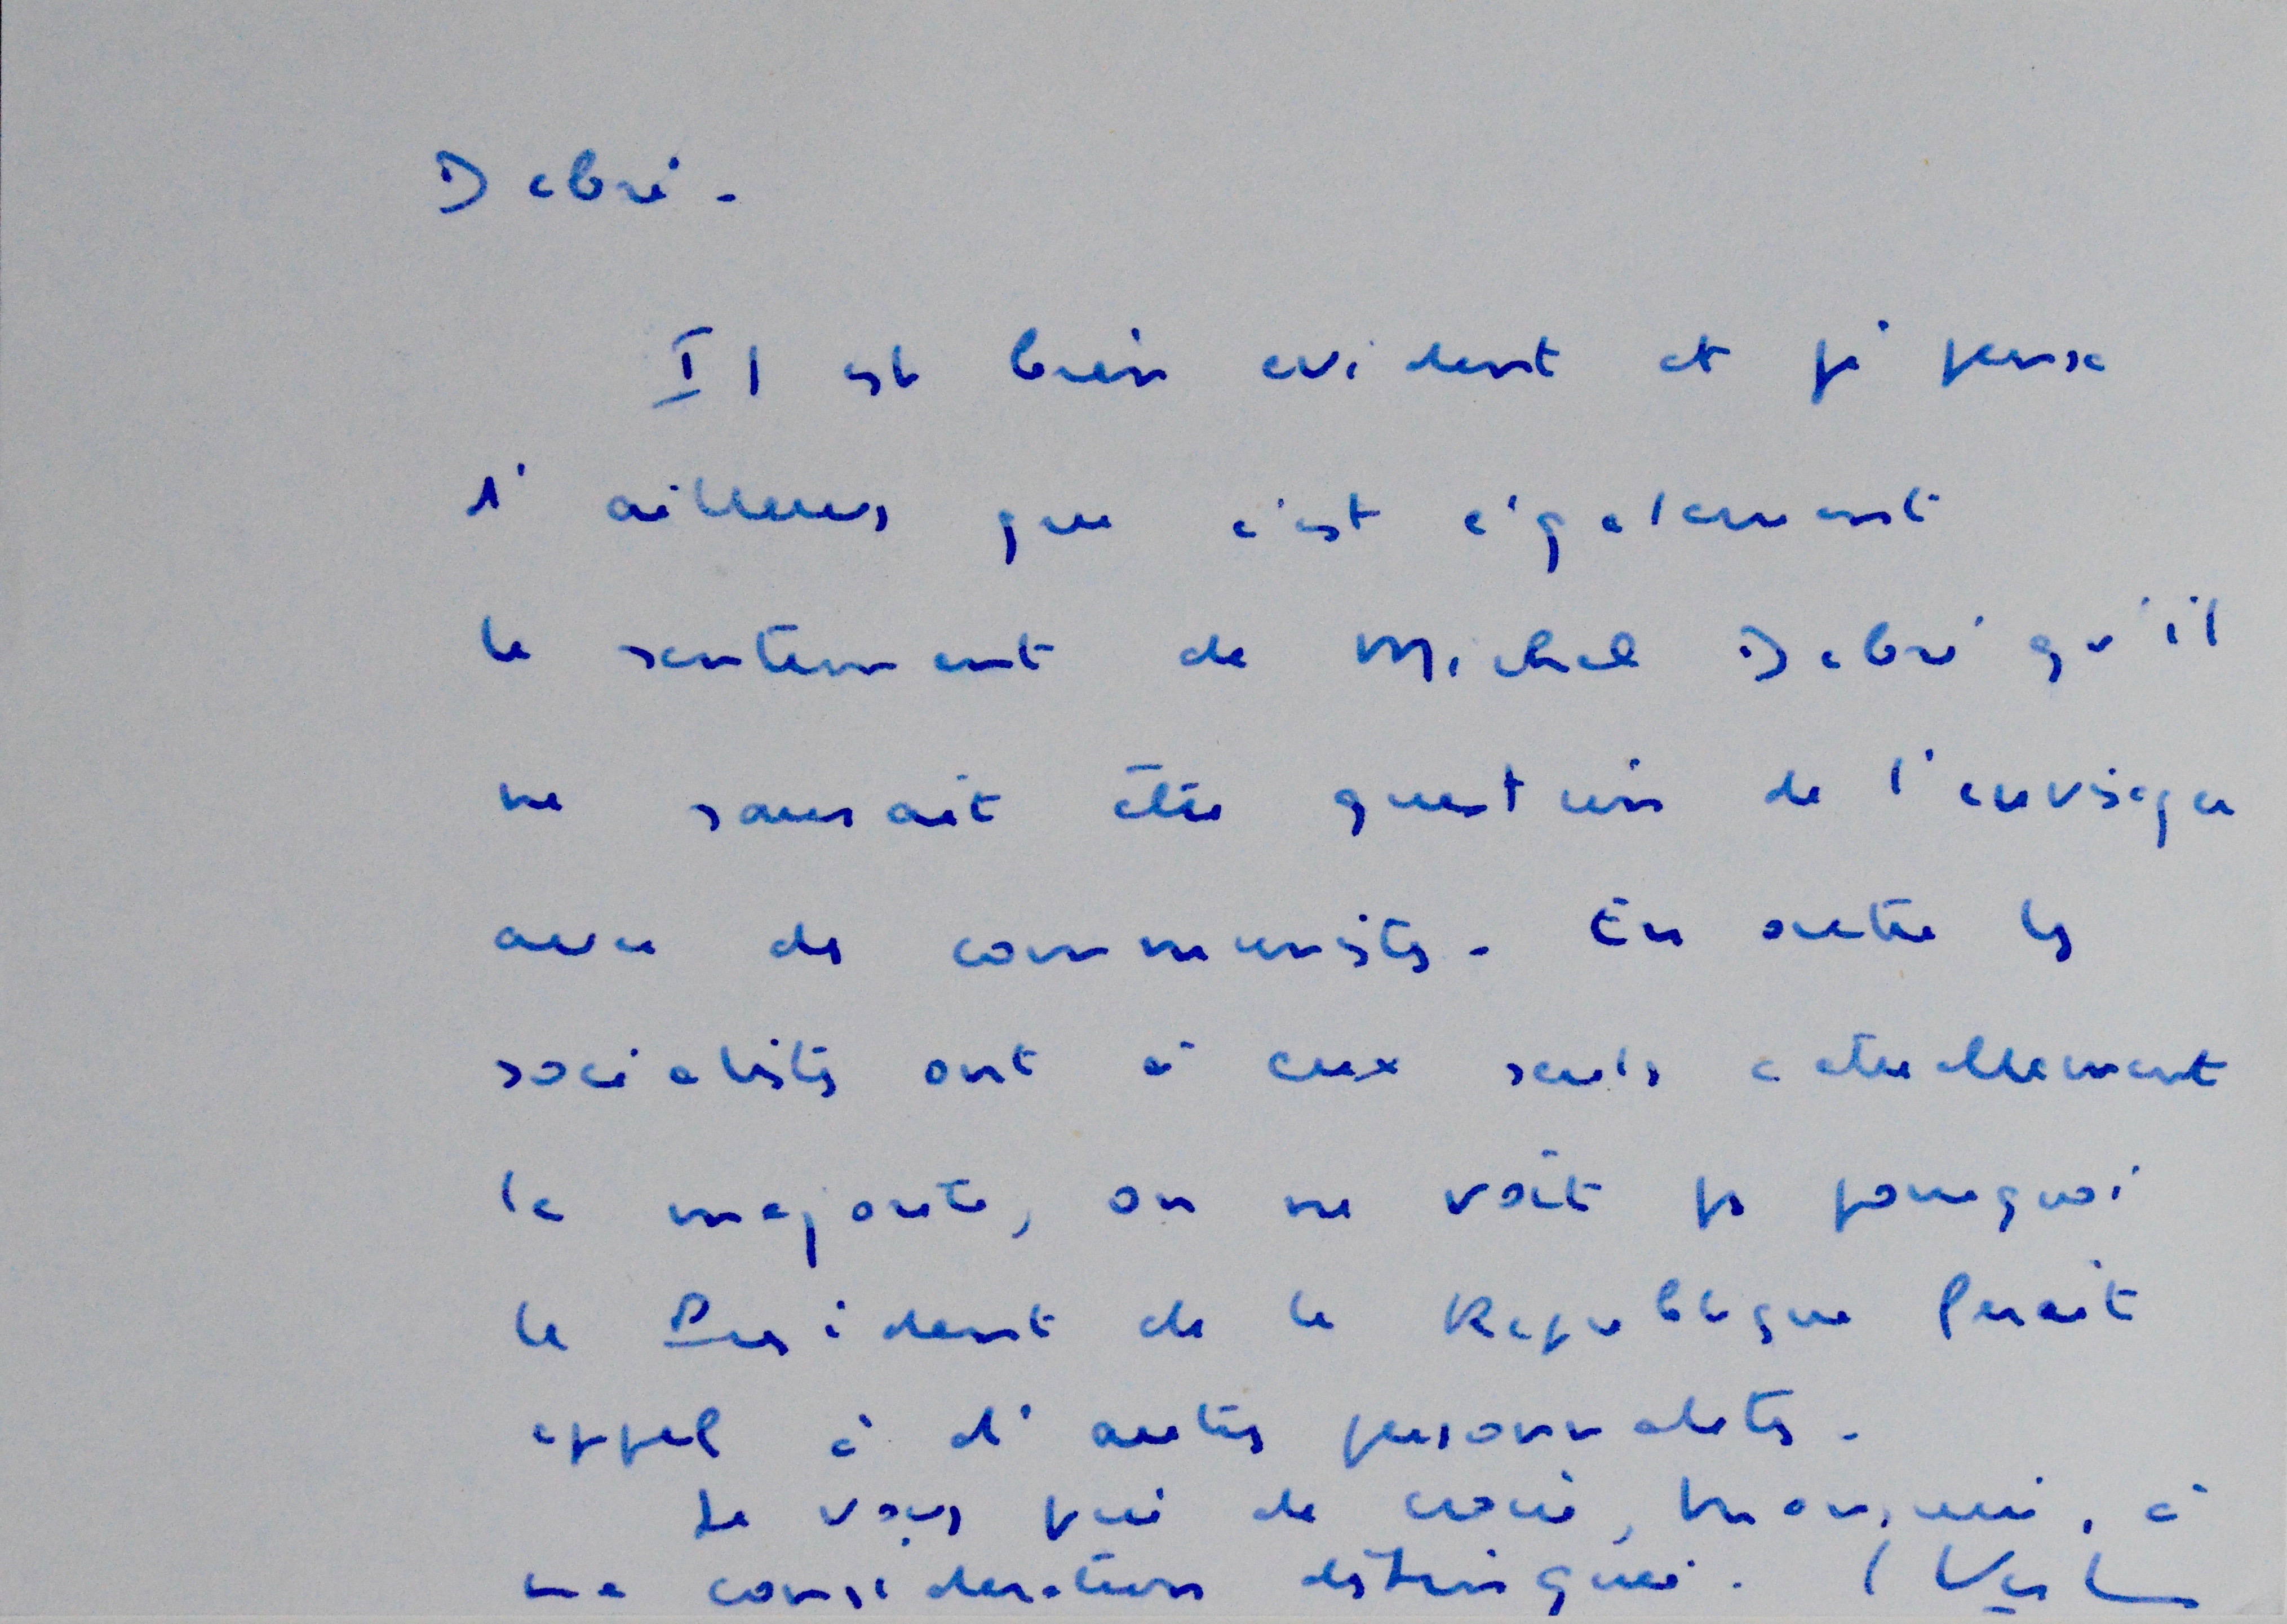 Debré.
Il est bien evident et je pense
d'ailleurs que c'est également
le sentiment de Michel Debré qu'il
ne saurait être question de l'envisager
avec des communistes. En outre les
socialistes ont à eux seuls actuellement
la majorité, on ne voit pas pourquoi
le President de la Republique ferait
appel à d'autres personnalités.
Je vous prie de croire, Monsieur, à
ma considération distinguée.